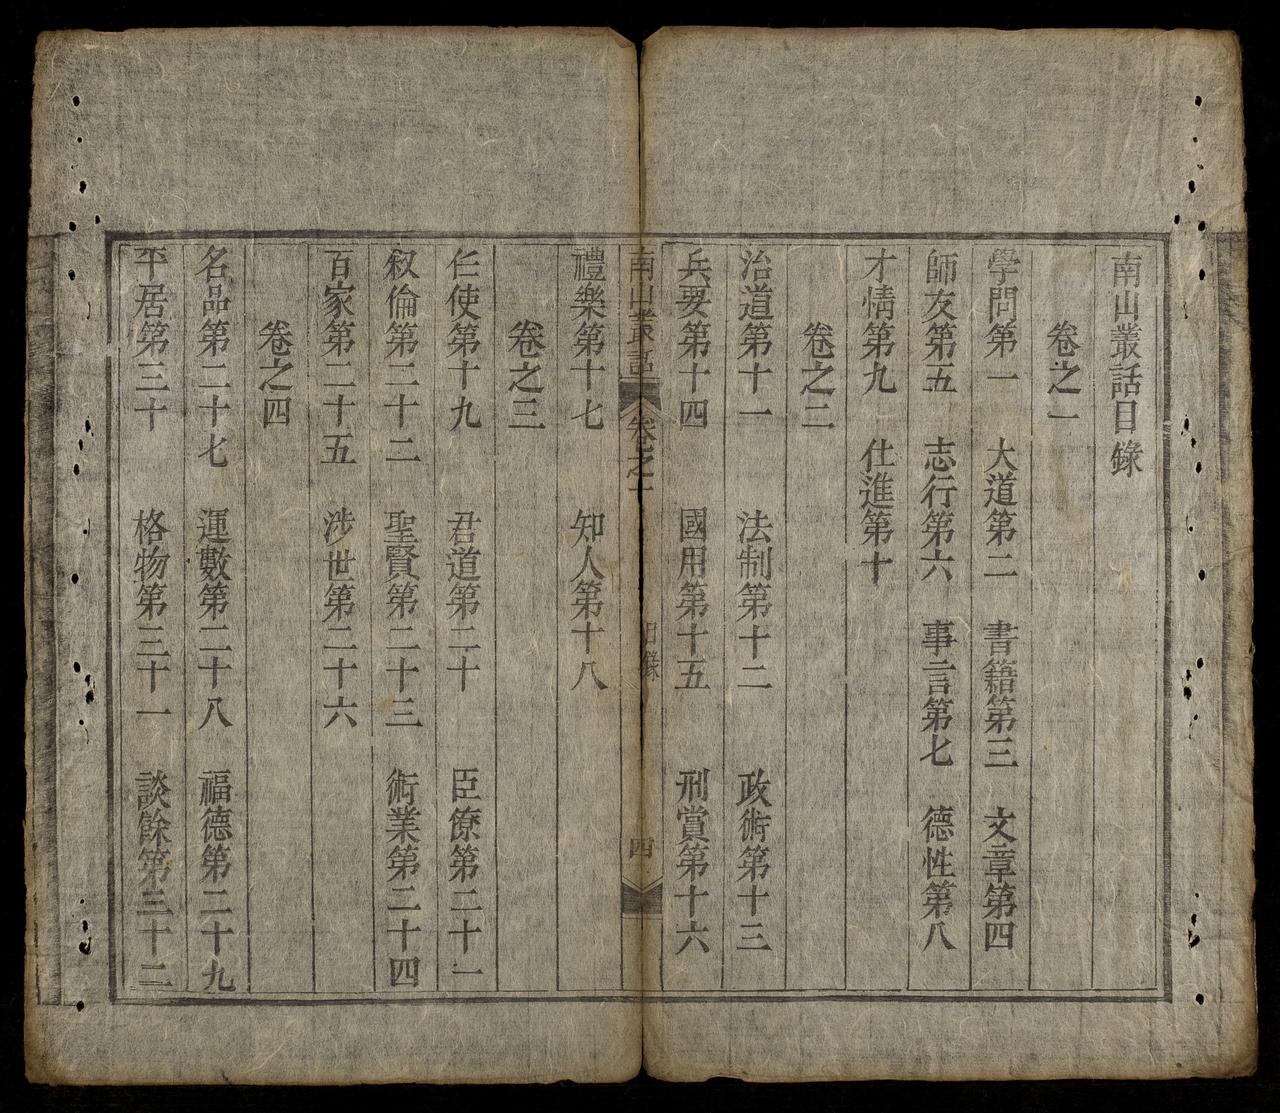 南山叢話目錄
卷之一
學問第一 大道第二 書籍第三 文章第四
師友第五 志行第六 事言第七 德性第八
才情第九 仕進第十
卷之二
治道第十一 法制第十二 政術第十三
兵要第十四 國用第十五 刑賞第十六
禮樂第十七 知人第十八
南山叢話 卷之一 目錄 四
卷之三
任使第十九 君道第二十 臣僚第二十一
叙倫第二十二 聖賢第二十三 術業第二十四
百家第二十五 涉世第二十六
卷之四
名品第二十七 運數第二十八 福德第二十九
平居第三十 格物第三十一 談餘第三十二